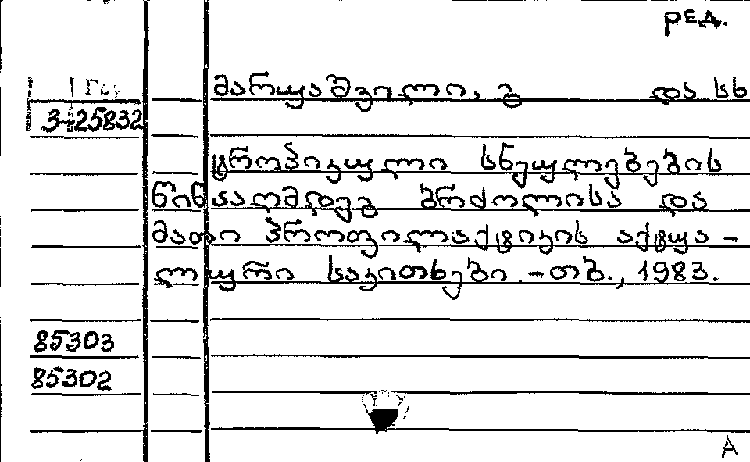 ред.
მარუაშვილი, გ და სხ
3-25832
ტროპიკული სნეულებების
წინააღმდეგ ბრძოლისა და
მათი პროფილაქტიკის აქტუა-
ლური საკითხები.-თბ., 1983.
85303
85302
A